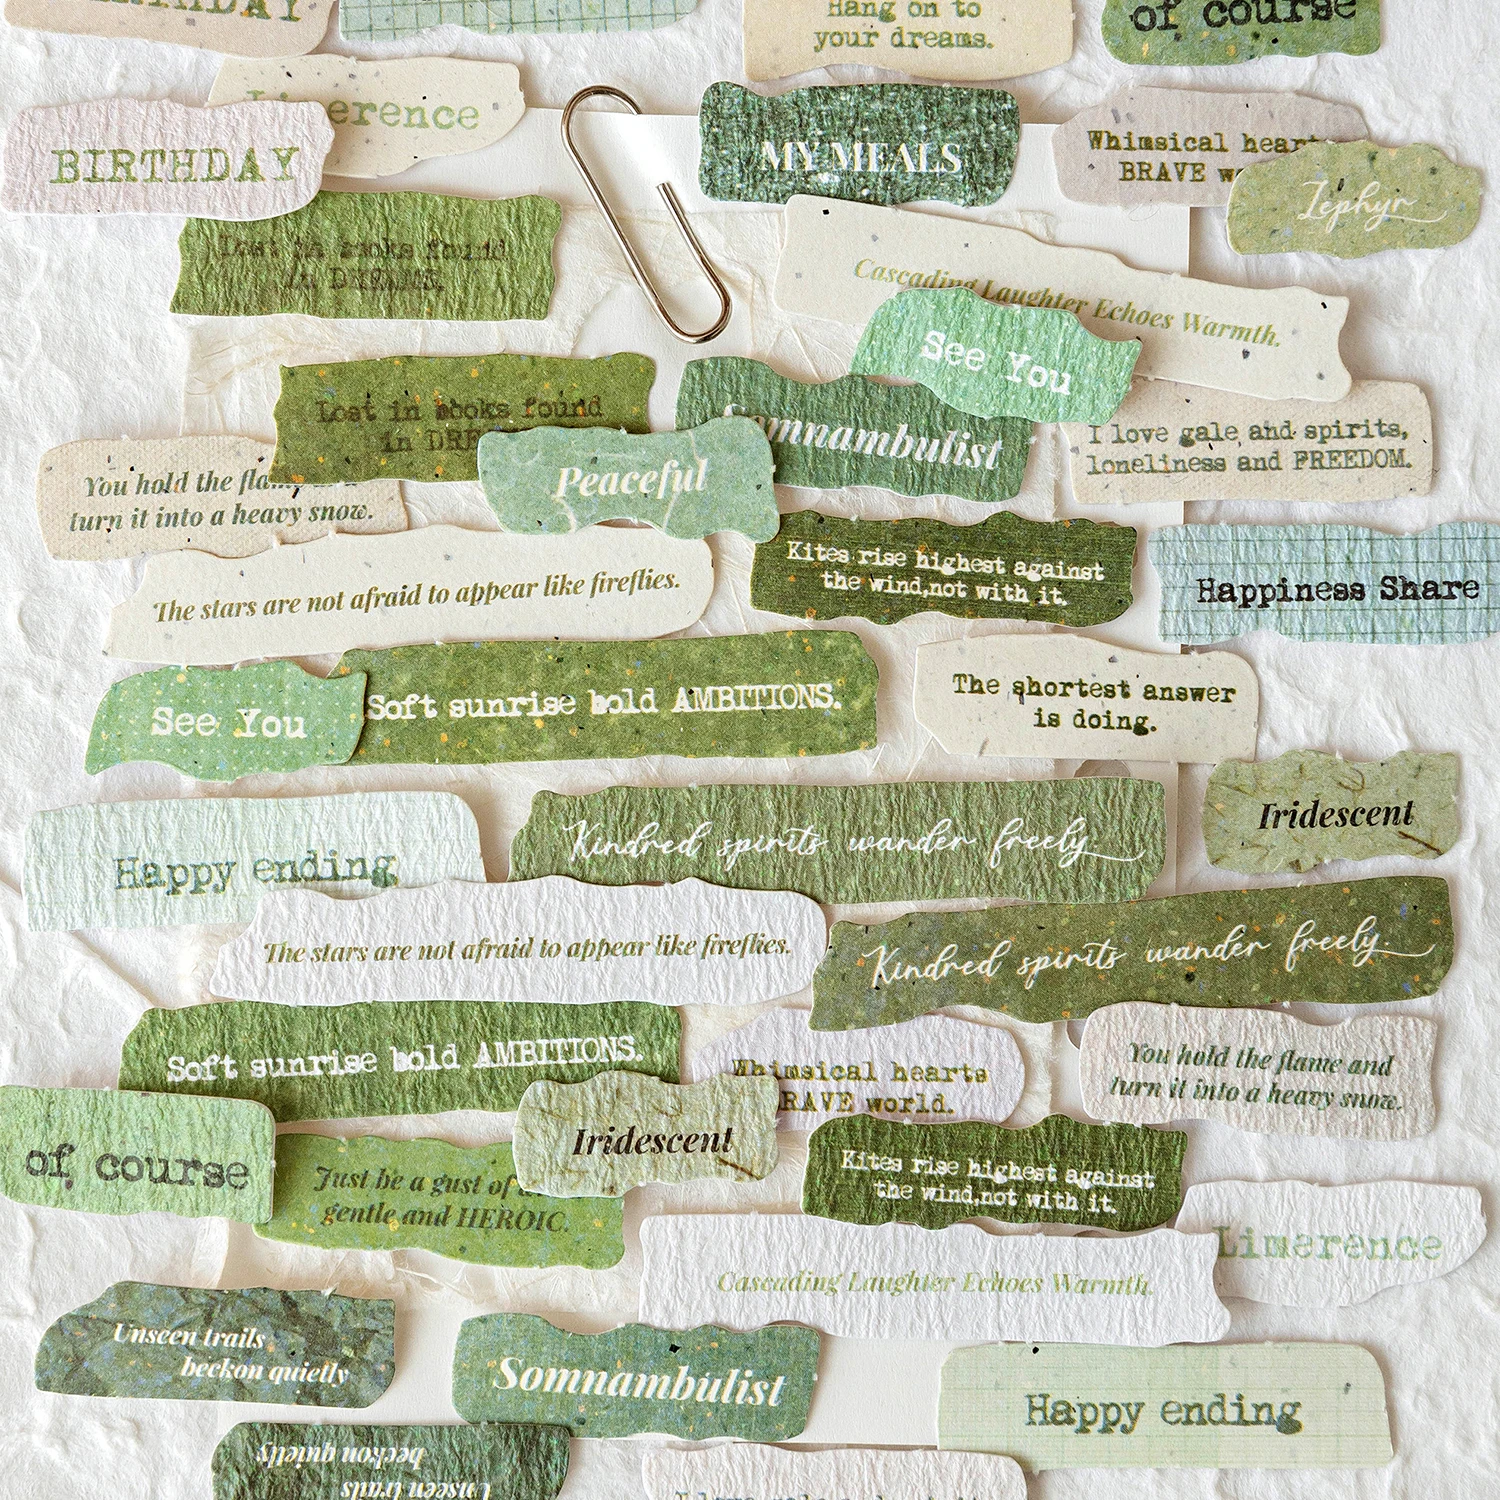 BIRTHDAY
Hang on to
your dreams.
of course
Limerence
BIRTHDAY
MY MEALS
Whimsical hearts
BRAVE
Zephyr
Lost in books found
in DREAMS.
Cascading Laughter Echoes Warmth.
See You
Lost in books found
in
Somnambulist
I love gale and spirits,
loneliness and FREEDOM.
You hold the
turn it into a heavy snow.
Peaceful
Kites rise highest against
the wind,not with it.
Happiness Share
The stars are not afraid to appear like fireflies.
See You
Soft sunrise bold AMBITIONS.
The shortest answer
is doing.
Iridescent
Happy ending
Kindred spirits wander freely.
The stars are not afraid to appear like fireflies.
Kindred spirits wander freely.
Soft sunrise bold AMBITIONS.
Whimsical hearts
BRAVE world.
You hold the flame and
turn it into a heavy snow.
of course
Just be a gust of
gentle and HEROIC.
Iridescent
Kites rise highest against
the wind,not with it.
Limerence
Cascading Laughter Echoes Warmth.
Unseen trails
beckon quietly
Somnambulist
Happy ending
Unseen trails
beckon quietly